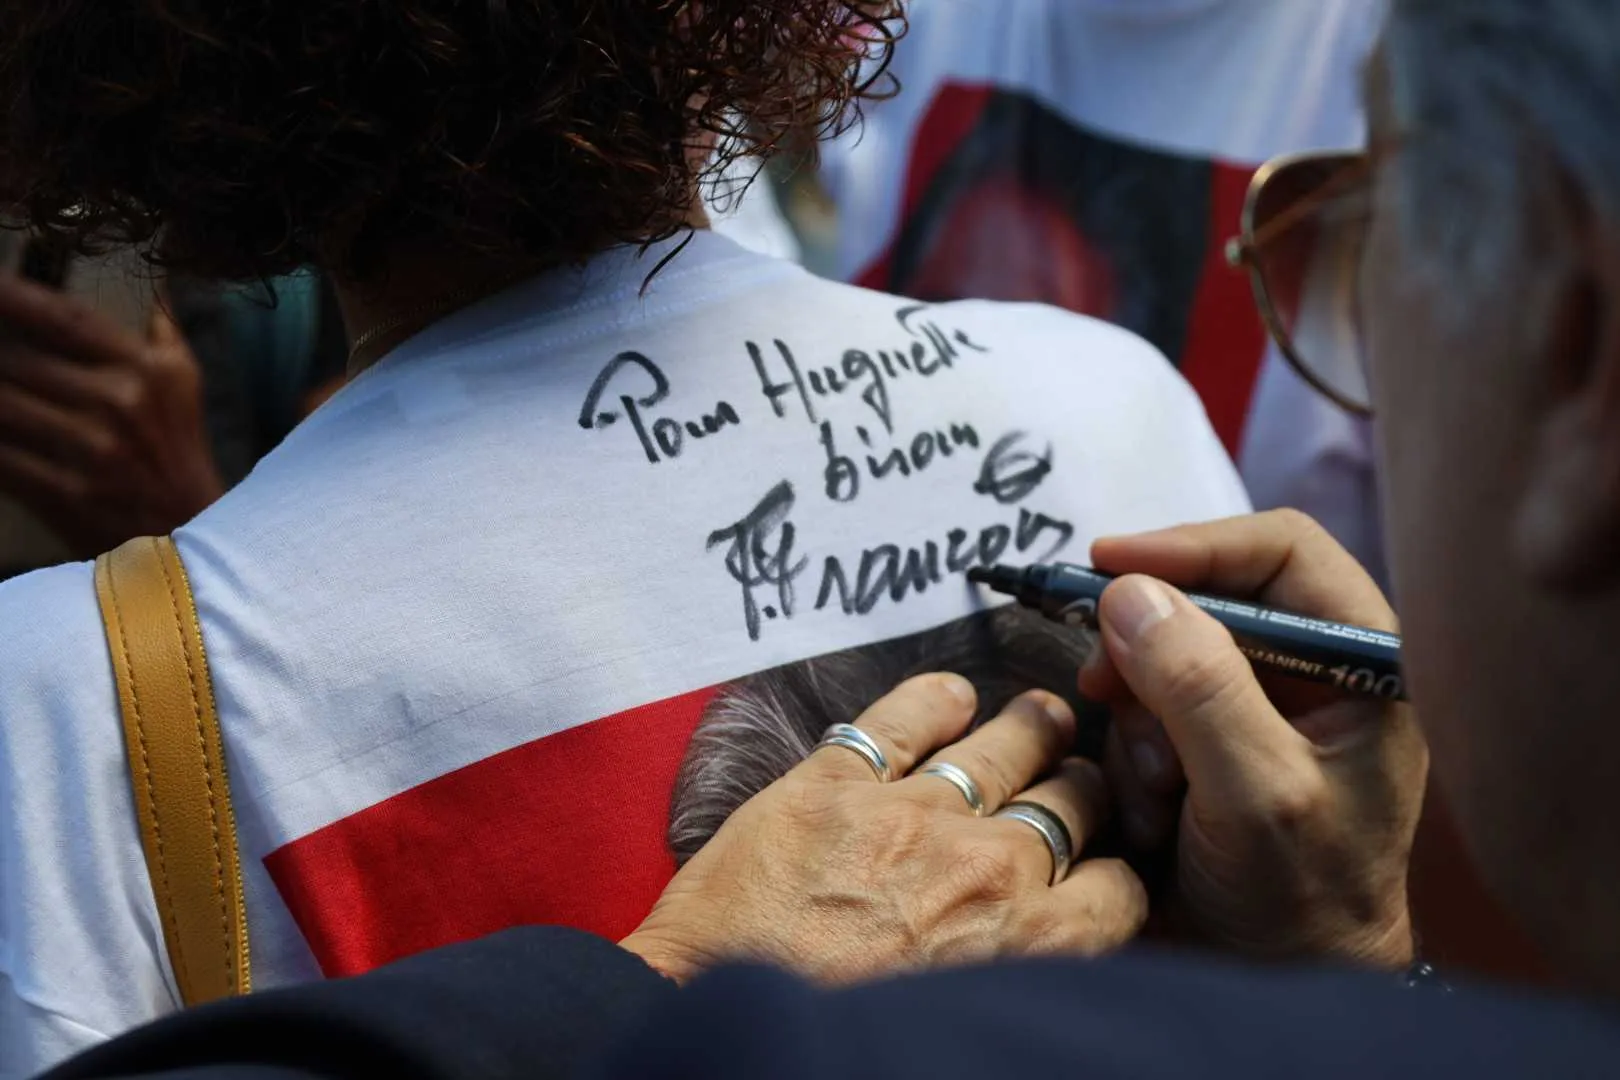 Pour Huguette
bisous
François
PERMANENT 100